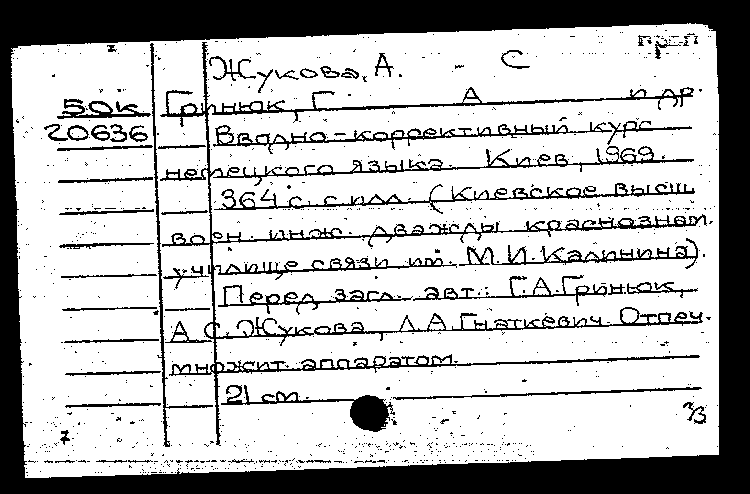 Жукова, А. - С
50К Гринюк, Г. А и др.
20636 Вводно-коррективный курс
немецкого языка. Киев, 1969.
364 с. с илл. (Киевское высш
воен. инж. дважды краснознам.
училище связи им. М.И.Калинина).
Перед загл. авт.: Г.А.Гринюк,
А.С.Жукова, Л.А.Гнаткевич. Отпеч.
множит. аппаратом.
21 см.